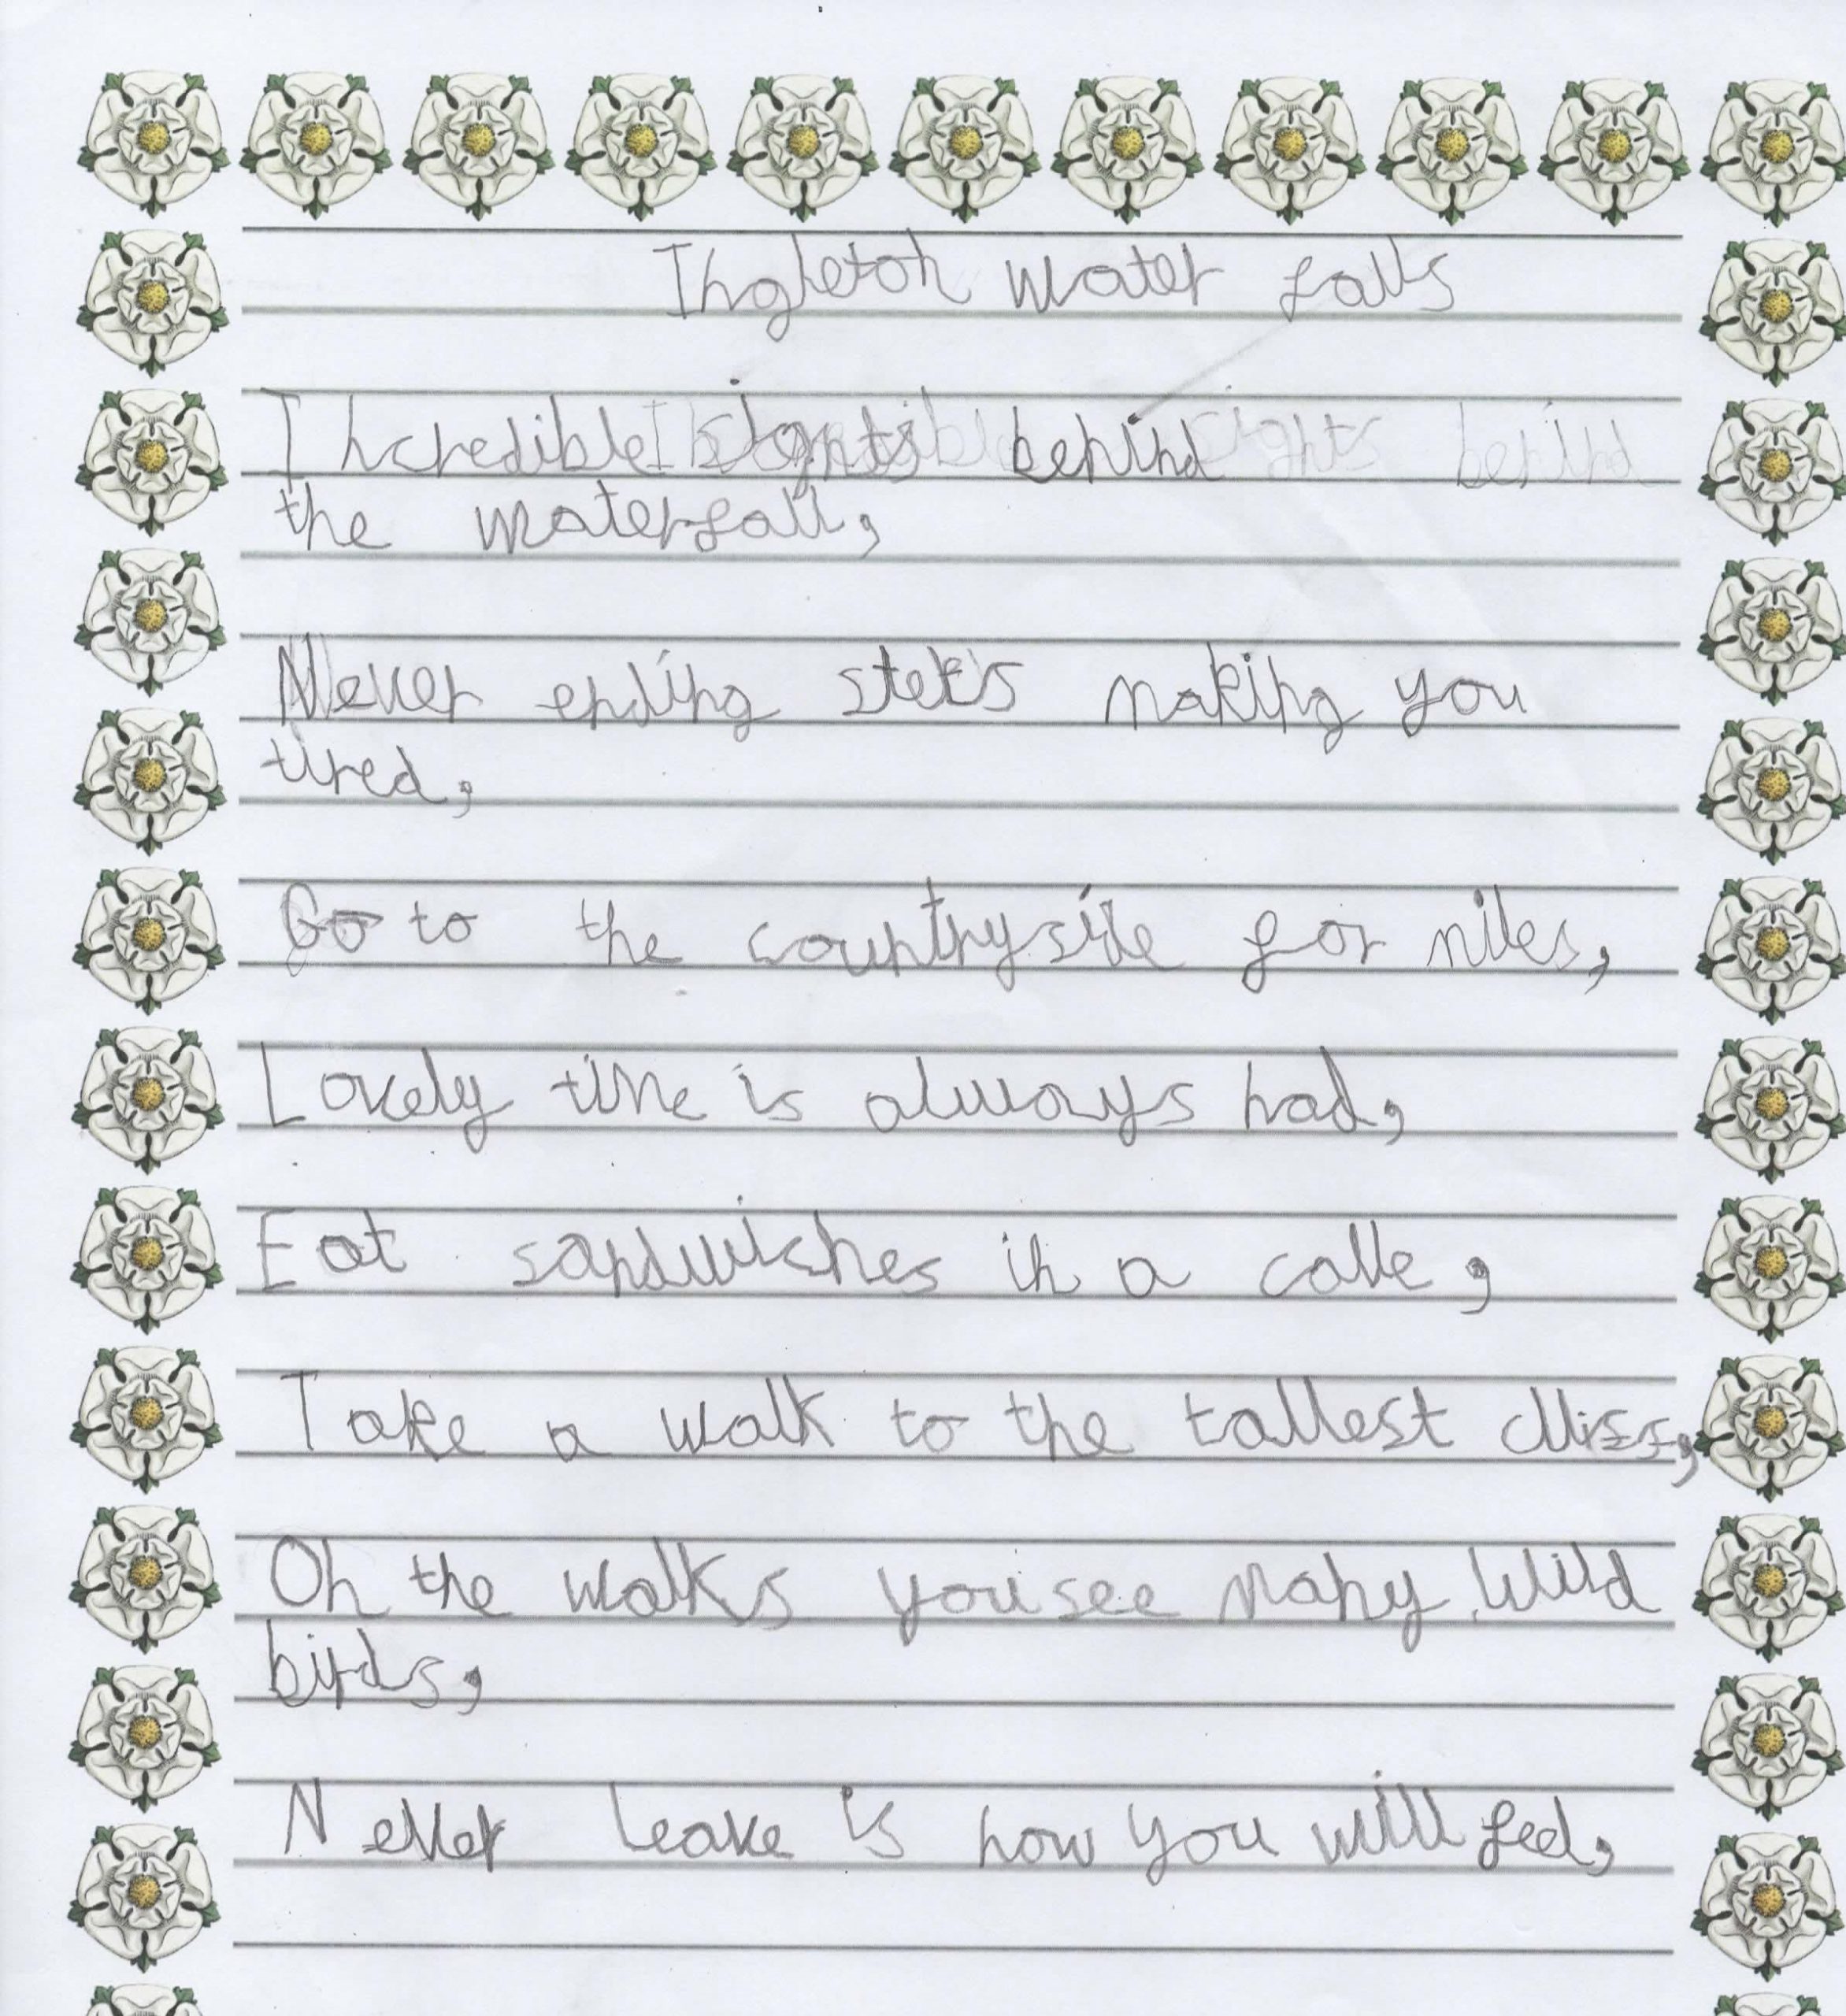 Ingleton water falls
Incredible sights behind
the waterfall,
Never ending steps making you
tired,
Go to the countryside for miles,
Lovely time is always had,
Eat sandwiches in a cave,
Take a walk to the tallest cliffs,
On the walks you see many wild
birds,
Never leave is how you will feel,